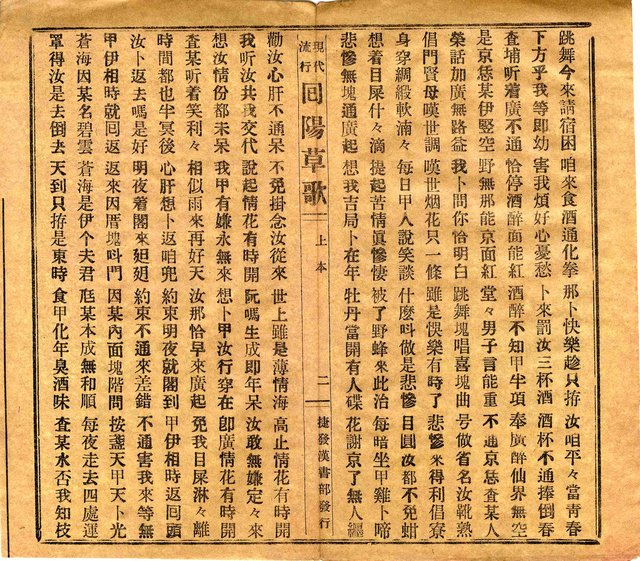 跳舞今來請宿困 咱來食酒通化拳 那卜快樂趁只拵 汝咱平々當青春
下方乎我等即幼 害我煩好心憂愁 卜來罰汝三杯酒 酒杯不通捧倒春
查埔听着廣不通 恰停酒醉面能紅 酒醉不知甲半項 奉廣醉仙界無空
是京㤰某伊豎空 野無那能京面紅 堂々男子言能重 不通京㤰查某人
榮話加廣無路益 我卜問你恰明白 跳舞塊唱喜塊曲 號做省名汝靴熟
倡門賢母嘆世調 嘆世烟花只一條 雖是快樂有時了 悲慘米得利倡寮
身穿綢緞軟湳々 每日甲人說笑談 什麼呌做是悲慘 日圓汝都不免蚶
想着目屎什々滴 提起苦情眞慘悽 被了野蜂來此治 每暗坐甲雞卜啼
悲慘無塊通廣起 想我吉局卜在年 牡丹當開有人碟 花謝京了無人纒
現代流行 回陽草歌 上本 二 捷發漢書部發行
勸汝心肝不通呆 不免掛念汝從來 世上雖是薄情海 高止情花有時開
我听汝共我交代 說起情花有時開 阮嗎生成即年呆 汝敢無嫌定々來
想汝情份都未呆 我甲有嫌永無來 想卜甲汝行穿在 卽廣情花有時開
查某听着笑利々 相似雨來再好天 汝那恰早來廣起 免我目屎淋々離
時間都也半冥後 心肝想卜返咱兜 約束明夜就閣到 甲伊相時返回頭
汝卜返去嗎是好 明夜着閣來廸廸 約束不通來差錯 不通害我來等無
甲伊相時就回返 返來因厝塊呌門 因某內面塊階問 按盞天甲天卜光
蒼海因某名碧雲 蒼海是伊个夫君 尪某本成無和順 每夜走去四處運
罩得汝是去倒去 天到只拵是東時 食甲化年臭酒味 查某水否我知枝